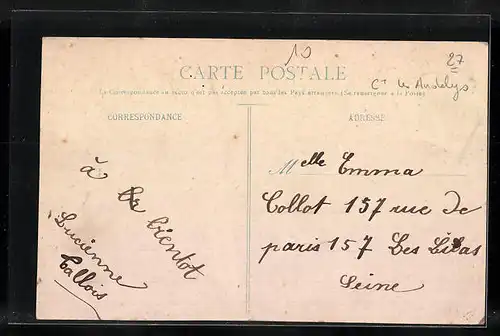 10
27
CARTE POSTALE
Ct les Andelys
La Correspondance au recto n'est pas acceptée par tous les Pays étrangers (Se renseigner à la Poste)
CORRESPONDANCE
ADRESSE
à
bientot
Lucienne
Callois
Melle Emma
Collot 157 rue de
paris 157 Les Lilas
Seine